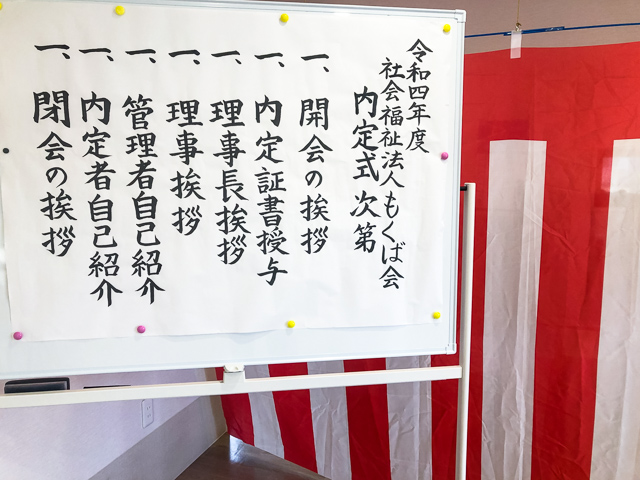 令和四年度
社会福祉法人もくば会
内定式 次第
一、開会の挨拶
一、内定証書授与
一、理事長挨拶
一、理事挨拶
一、管理者自己紹介
一、内定者自己紹介
一、閉会の挨拶